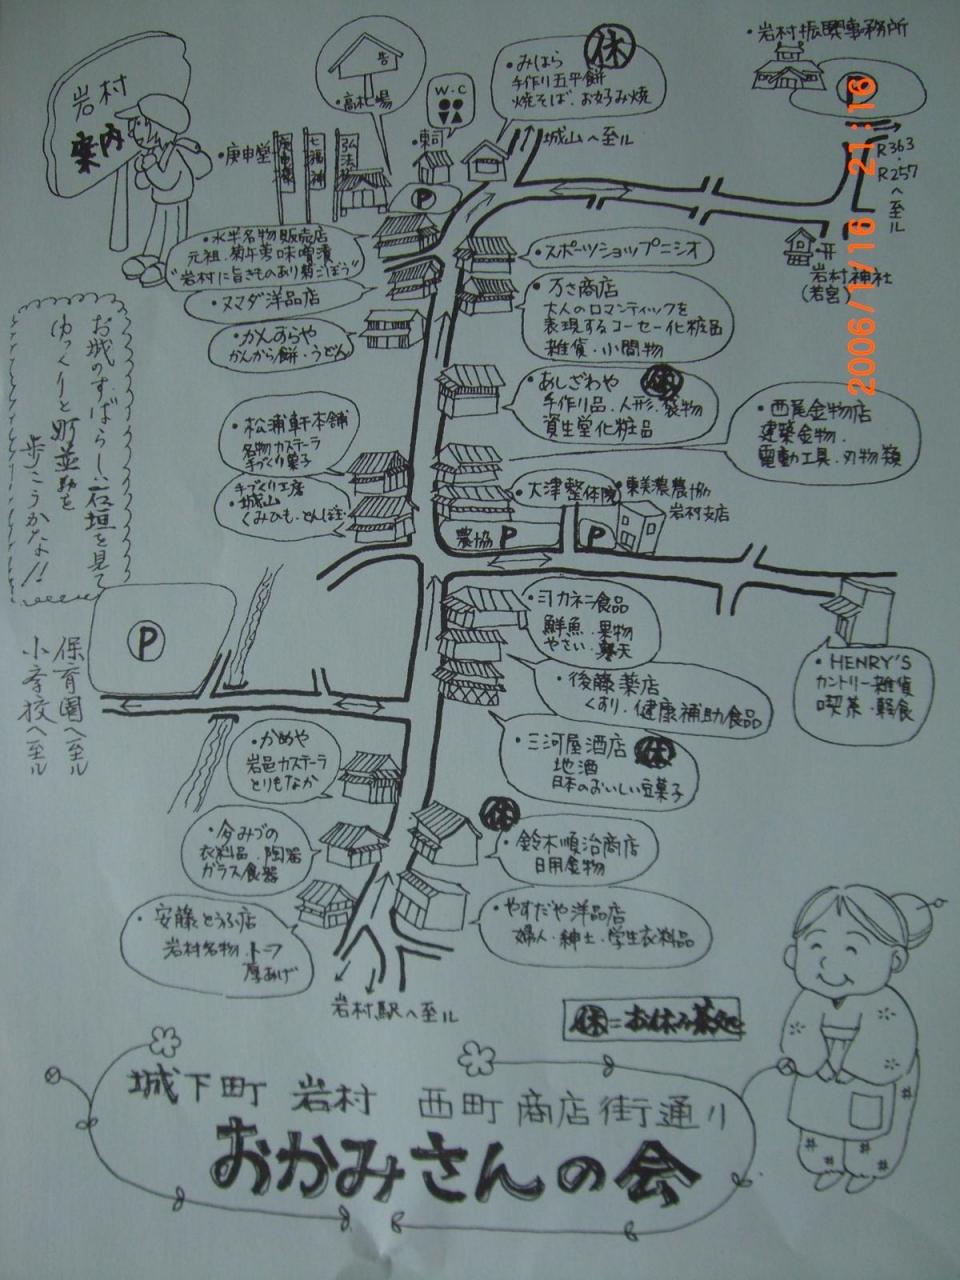 岩村
案内
・高札場
告
W・C
・みはら
手作り五平餅
焼そば、お好み焼
休
・岩村振興事務所
P
R363
R257
へ至ル
城山へ至ル
・東司
・庚申堂
七福神
P
・水半名物販売店
元祖 菊午蒡味噌漬
"岩村に旨きものあり菊ごぼう"
・ヌマダ洋品店
・かんからや
かんから餅・うどん
・スポーツショップニシオ
・万さ商店
大人のロマンティックを
表現するコーセー化粧品
雑貨・小間物
岩村神社
(若宮)
2006/1/16 21:16
・あしざわや
手作り品・人形・袋物
資生堂化粧品
休
・西尾金物店
建築金物・
電動工具・刃物類
お城のすばらしい石垣を見て
ゆっくりと町並みを
歩こうかなぁ!!
・松浦軒本舗
名物カステーラ
手づくり菓子
手づくり工房
・城山
くみひも・とんぼ玉
・大津整体院
・東美濃農協
岩村支店
農協 P
P
P
保育園へ至ル
小学校へ至ル
・ヨカネニ食品
鮮魚・果物
やさい・寒天
・後藤薬店
くすり・健康補助食品
・HENRY'S
カントリー雑貨
喫茶・軽食
・三河屋酒店
地酒
日本のおいしい豆菓子
休
・かめや
岩邑カステーラ
とりもなか
・今みづの
衣料品・陶器
ガラス食器
休
・鈴木順治商店
日用金物
・安藤とうふ店
岩村名物 トーフ
厚あげ
・やすだや洋品店
婦人・紳士・学生衣料品
岩村駅へ至ル
休=お休み茶処
城下町 岩村 西町商店街通り
おかみさんの会